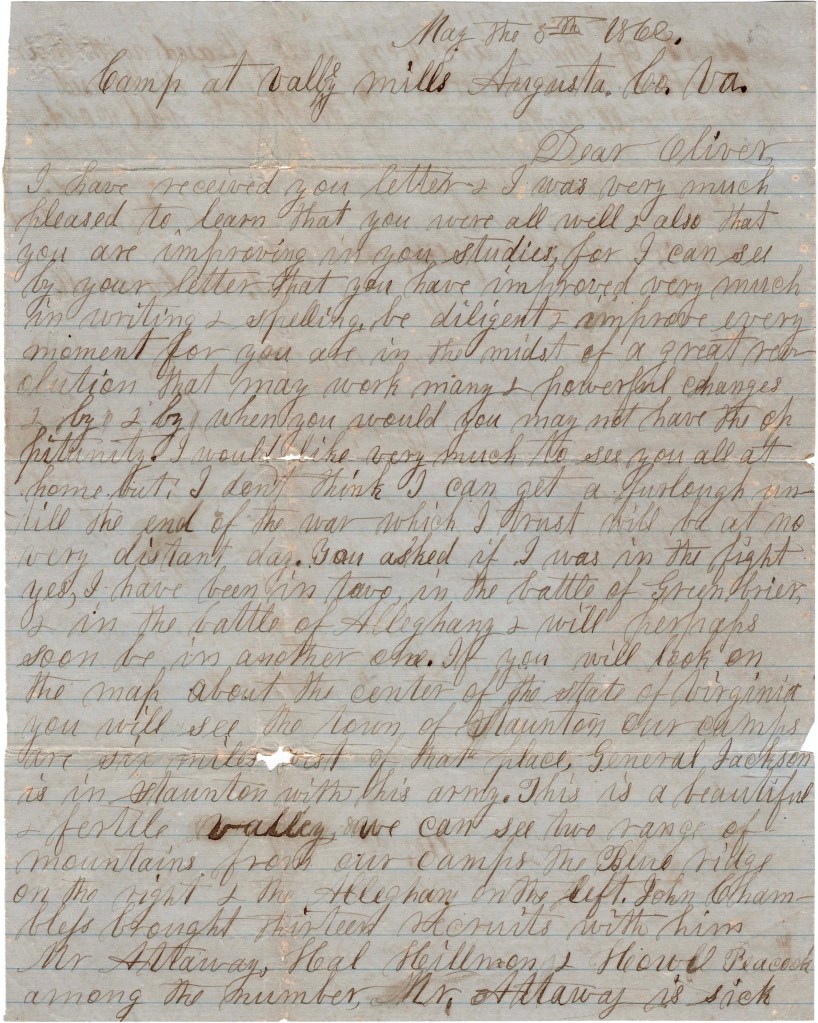 May the 5th 1862.
Camp at valley mills Augusta. Co. Va.
Dear Oliver,
I have received you letter & I was very much
pleased to learn that you were all well & also that
you are improving in you studies, for I can see
by your letter that you have improved very much
in writing & spelling, be diligent & improve every
moment for you are in the midst of a great rev
olution that may work many & powerful changes
& by & by when you would you may not have the op
pitunity. I would like very much to see you all at
home but, I don't think I can get a furlough un
till the end of the war which I trust will be at no
very distant day. You asked if I was in the fight
yes, I have been in two, in the battle of Green brier,
& in the battle of Alleghany & will perhaps
soon be in another one. If you will look on
the map about the center of the state of virginia
you will see the town of Staunton our camps
are six miles west of that place, General Jackson
is in Staunton with his army. This is a beautiful
& fertile valley, we can see two range of
mountains from our camps the Blue ridge
on the right & the Allegham on the left. John Cham-
bless brought thirteen recruits with him
Mr Attaway, Hal Hillmon & Howel Peacock
among the number, Mr. Attaway is sick